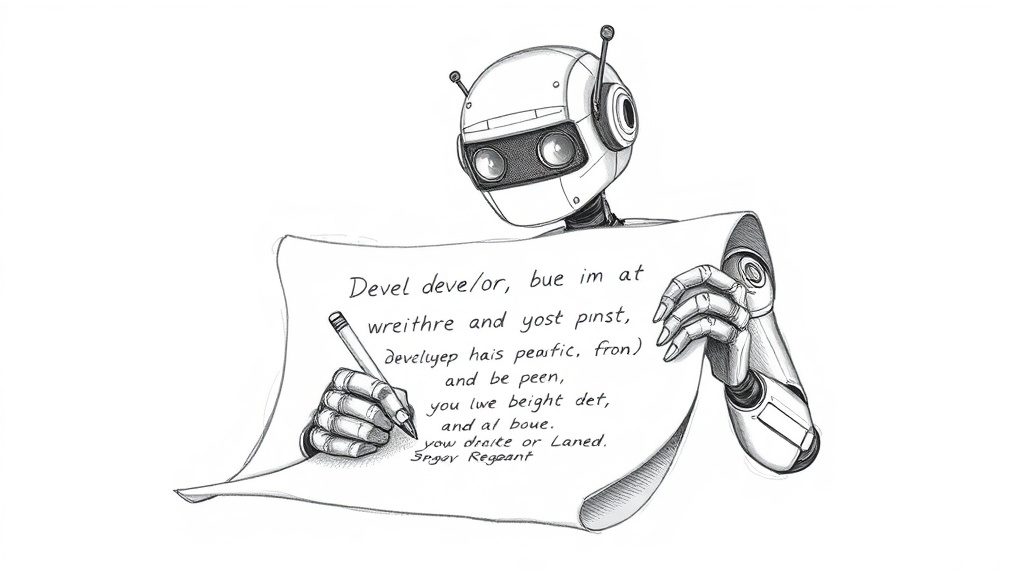 Devel deve/or, bue im at
wreithre and yost pinst,
develyep hais peasfic, fron)
and be peen,
you lwe beight det,
and al boue.
yow draite or Laned.
Regeant